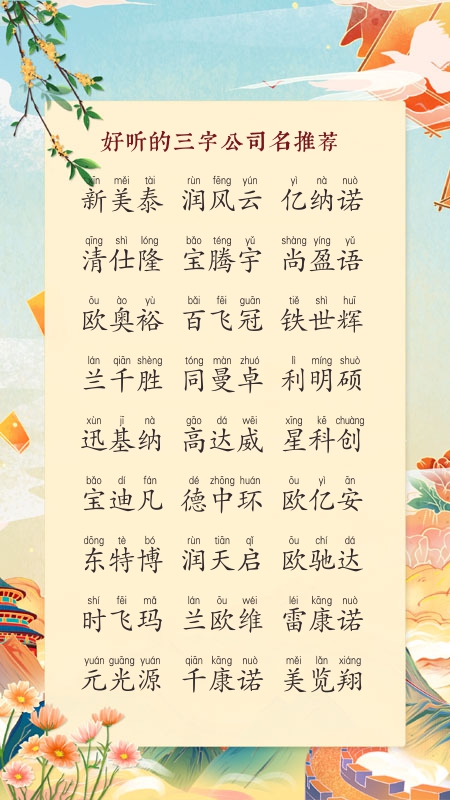 好听的三字公司名推荐
xīn měi tài rùn fēng yún yì nà nuò
新美泰 润风云 亿纳诺
qīng shì lóng bǎo téng yǔ shàng yíng yǔ
清仕隆 宝腾宇 尚盈语
ōu ào yù bǎi fēi guān tiě shì huī
欧奥裕 百飞冠 铁世辉
lán qiān shèng tóng màn zhuó lì míng shuò
兰千胜 同曼卓 利明硕
xùn jī nà gāo dá wēi xīng kē chuàng
迅基纳 高达威 星科创
bǎo dí fán dé zhōng huán ōu yì ān
宝迪凡 德中环 欧亿安
dōng tè bó rùn tiān qǐ ōu chí dá
东特博 润天启 欧驰达
shí fēi mǎ lán ōu wéi léi kāng nuò
时飞玛 兰欧维 雷康诺
yuán guāng yuán qiān kāng nuò měi lǎn xiáng
元光源 千康诺 美览翔